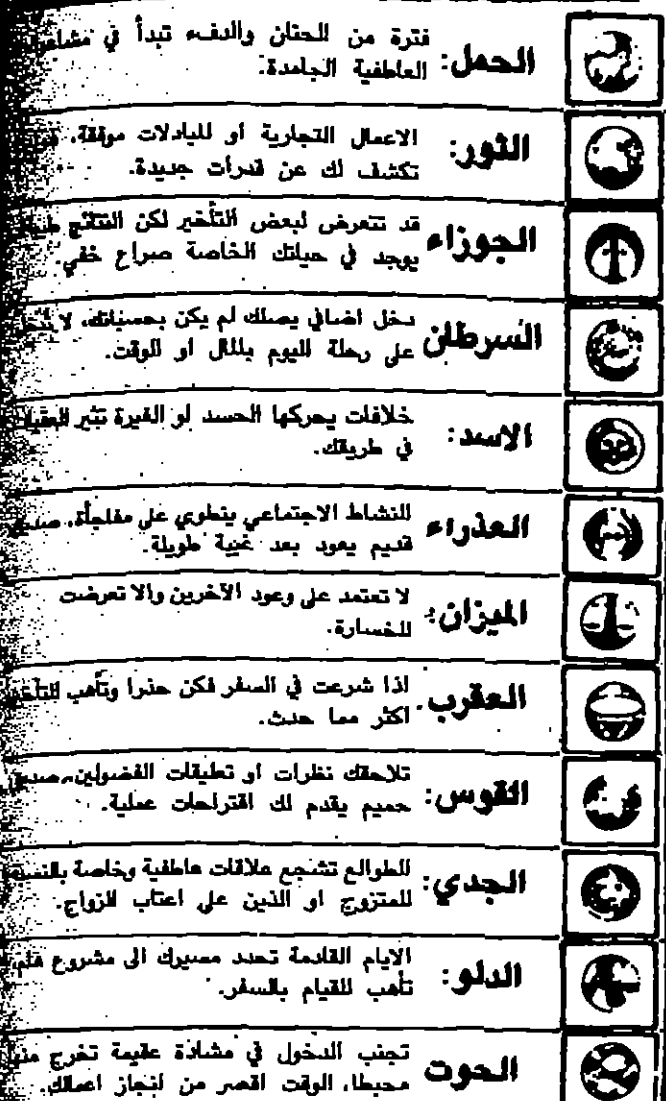 الحمل: فترة من الحنان والدفء تبدأ في
العاطفية الجامدة.
الثور: الاعمال التجارية او المبادلات موفقة،
تكشف لك عن قدرات جديدة.
الجوزاء قد تتعرض لبعض التأخير لكن النتائج
يوجد في حياتك الخاصة صراع خفي.
السرطان دخل اضافي يصلك لم يكن بحسبانك، لا
على رحلة اليوم بالمال او الوقت.
الاسد: خلافات يحركها الحسد او الغيرة تثير
في طريقك.
العذراء النشاط الاجتماعي ينطوي على مفاجأة،
قديم يعود بعد غيبة طويلة.
الميزان: لا تعتمد على وعود الآخرين والا تعرضت
للخسارة.
العقرب. اذا شرعت في السفر فكن حذرا وتأهب
اكثر مما حدث.
القوس: تلاحقك نظرات او تعليقات الفضولين،
حميم يقدم لك اقتراحات عملية.
الجدي: الطوالع تشجع علاقات عاطفية وخاصة
للمتزوج او الذين على اعتاب الزواج.
الدلو: الايام القادمة تحدد مصيرك الى مشروع
تأهب للقيام بالسفر.
الحوت تجنب الدخول في مشادة عقيمة تخرج
محبطا، الوقت اقصر من انجاز اعمالك.